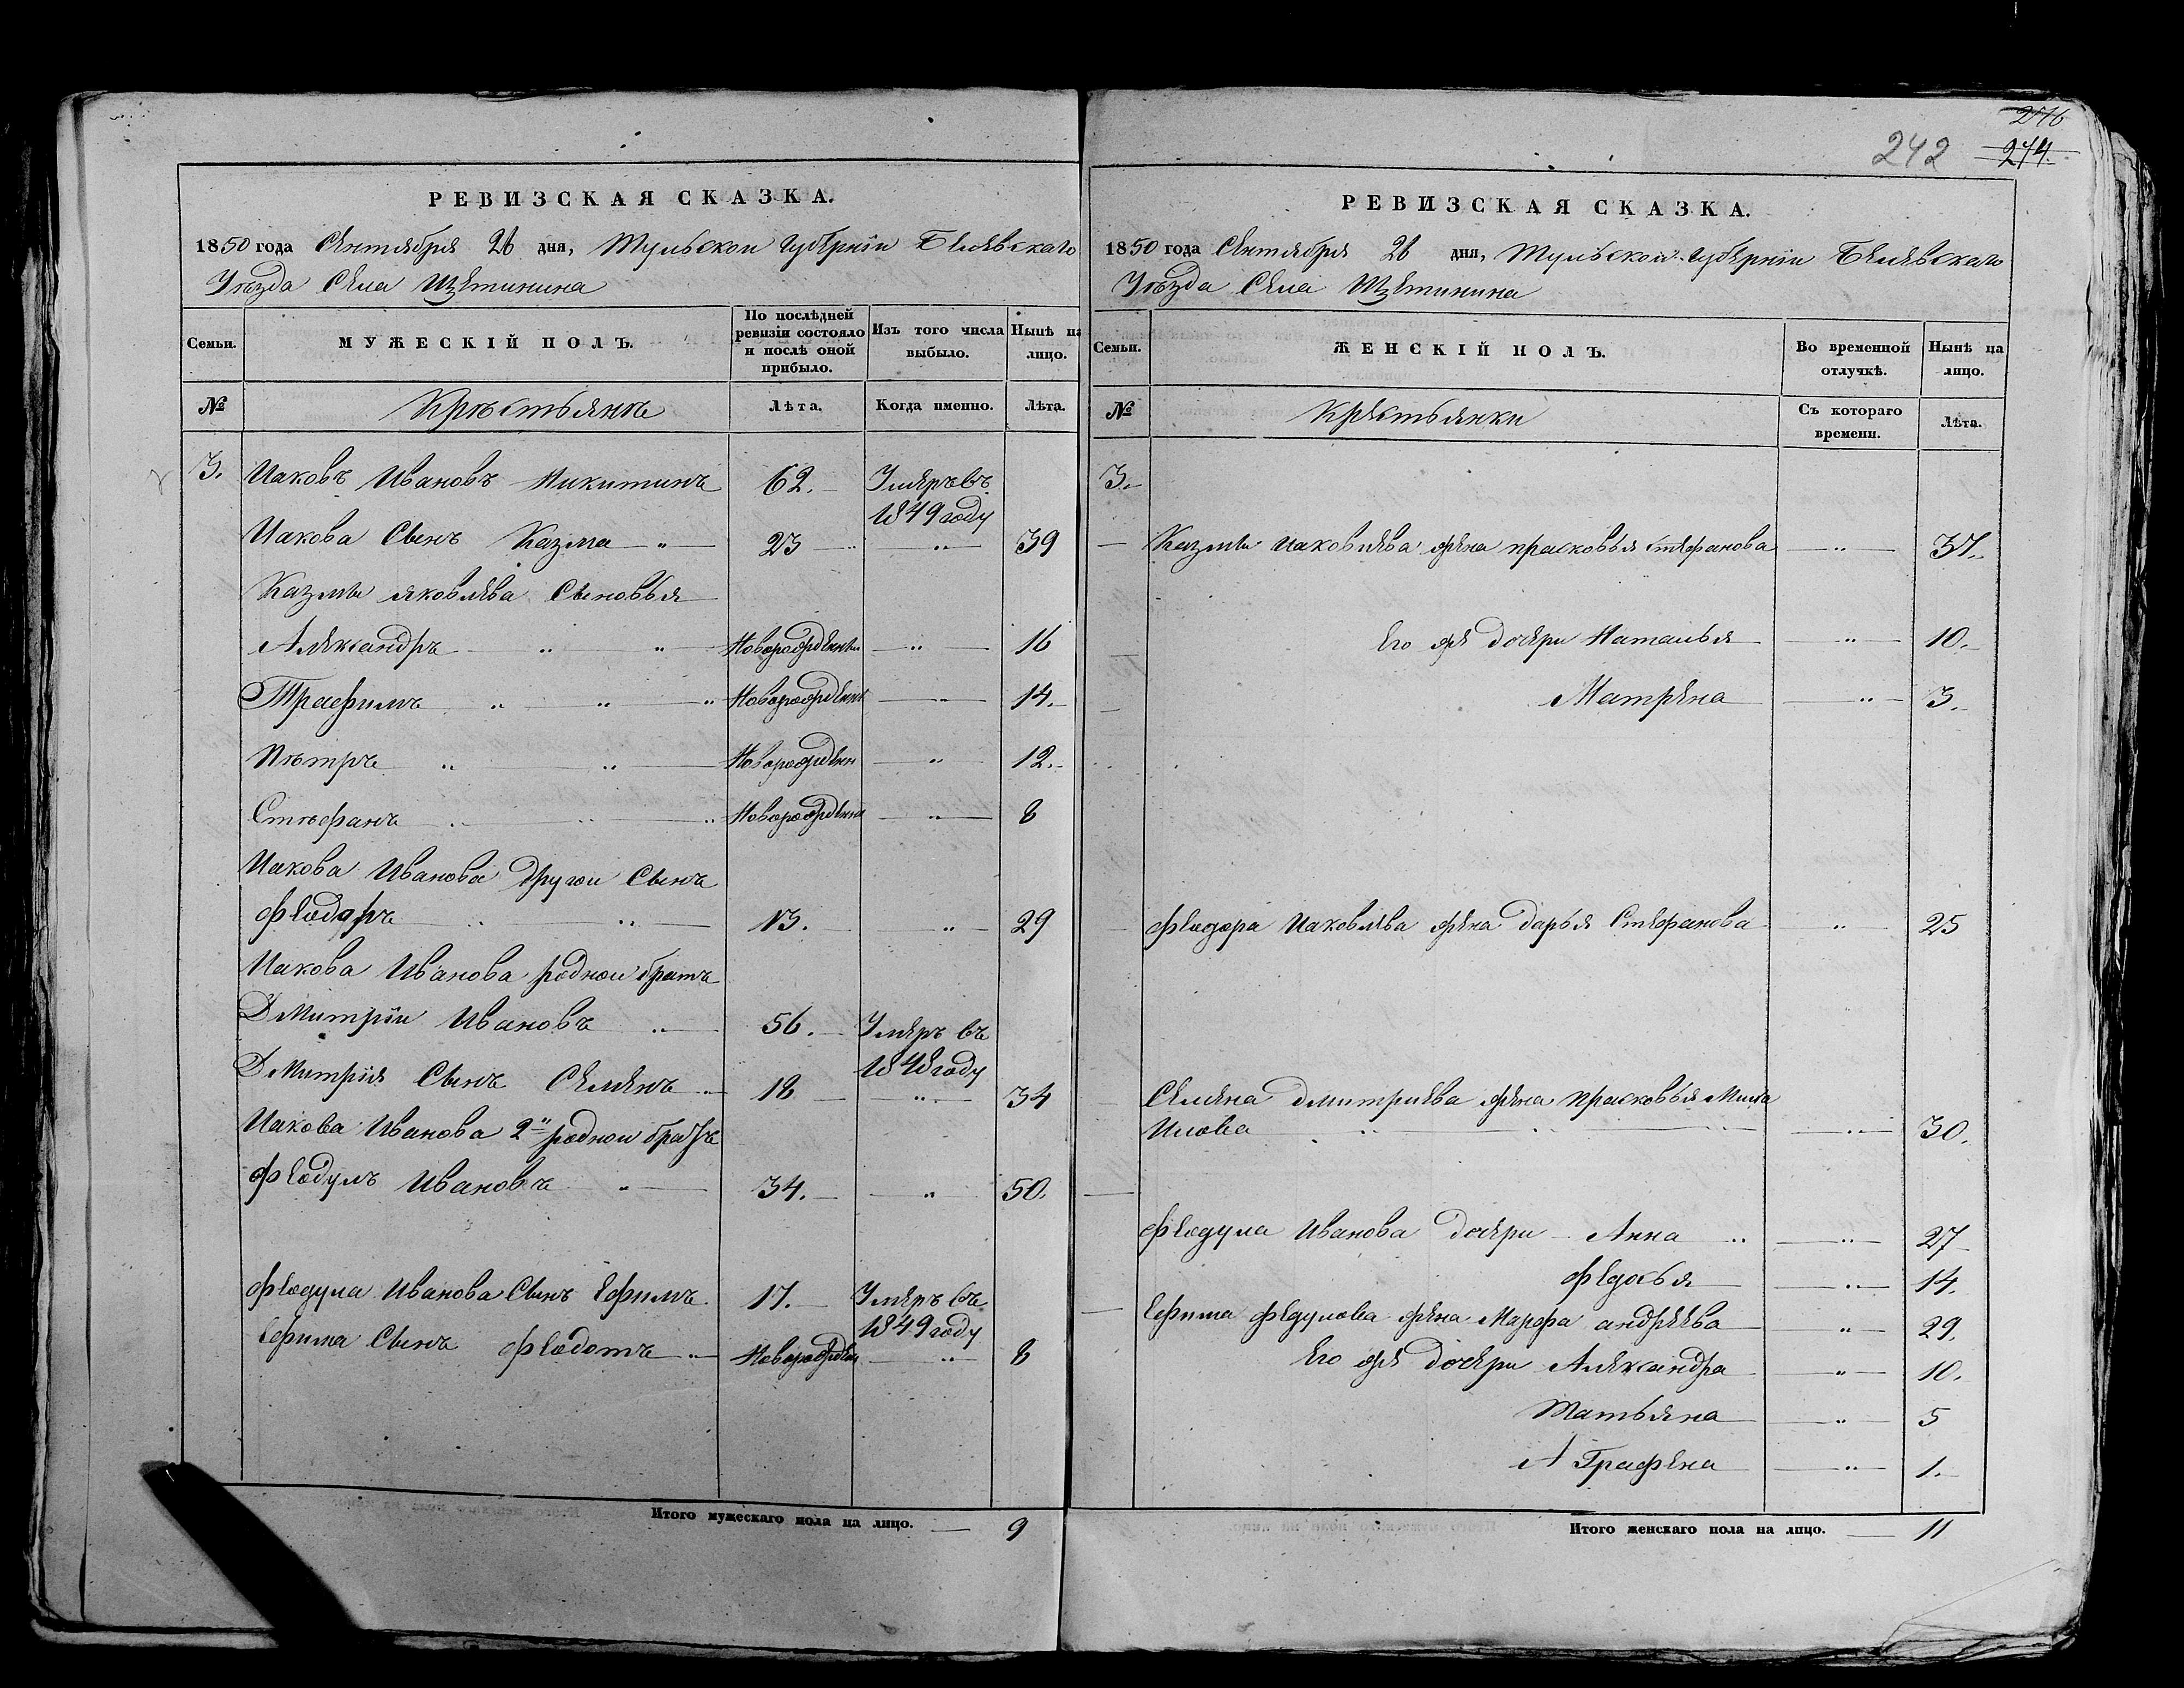 РЕВИЗСКАЯ СКАЗКА.
1850 года Сентября 26 дня, Тульской губернiи Белевскаго
Уѣзда Села Щетинина
Семьи.
МУЖЕСКІЙ ПОЛЪ.
По послѣдней ревизіи состояло и послѣ оной прибыло.
Изъ того числа выбыло.
Нынѣ на лицо.
№
Крѣстьянѣ
Лѣта.
Когда именно.
Лѣта.
3. Иаковъ Ивановъ Никитинъ 62. Умеръ въ 1849 году
Иакова Сынъ Казма 23 39
Казмы яковлева Сыновья
Александръ Новорожденны 16
Трафимъ Новорожденн 14.
Пѣтръ Новорожденн 12.
Стѣфанъ Новорожденн 8
Иакова Иванова другои Сынъ
Феодоръ 13. 29
Иакова Иванова роднои братъ
Дмитрiи Ивановъ 56. Умеръ въ 1848 году
Дмитрiя Сынъ Семенъ 18 34
Иакова Иванова 2й роднои братъ
Феодулъ Ивановъ 34. 50.
Феодула Иванова Сынъ Ефимъ 17. Умеръ въ 1849 году
Ефима Сынъ Феодотъ Новорожден 8
Итого мужескаго пола на лицо. 9
246
242 244.
РЕВИЗСКАЯ СКАЗКА.
1850 года Сентября 26 дня, Тульской губернiи Белевскаго
Уѣзда Села Щетинина
Семьи.
ЖЕНСКІЙ ПОЛЪ.
Во временной отлучкѣ.
Нынѣ на лицо.
№
Крестьянки
Съ котораго времени.
Лѣта.
3.
Казмы иаковлева жена прасковья стефанова 37.
Его же дочери Наталья 10.
Матрена 3.
Феодора Иаковлева жена дарья Стефанова 25
Семена дмитриева жена прасковья Миха
Илова 30.
Феодула Иванова дочери Анна 27
Федосья 14.
Ефима Федулова жена Марфа андреева 29.
Его же дочери Александра 10.
Татьяна 5
АГрафена 1.
Итого женскаго пола на лицо. 11